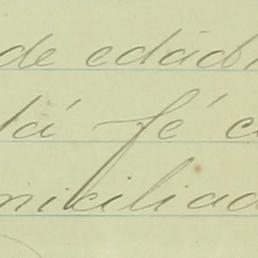 de edad
dá fé c
miciliad